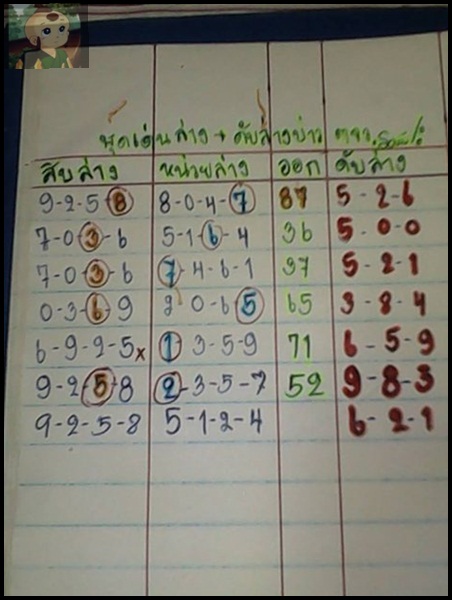 ชุดเด่นล่าง + ดับล่างบ่าว
สิบล่าง หน่วยล่าง ออก ดับล่าง
9-2-5-8 8-0-4-7 87 5-2-6
7-0-3-6 5-1-6-4 36 5-0-0
7-0-3-6 7-4-6-1 37 5-2-1
0-3-6-9 2 0-6-5 65 3-8-4
6-9-2-5x 1 3-5-9 71 6-5-9
9-2-5-8 2-3-5-7 52 9-8-3
9-2-5-8 5-1-2-4 6-2-1